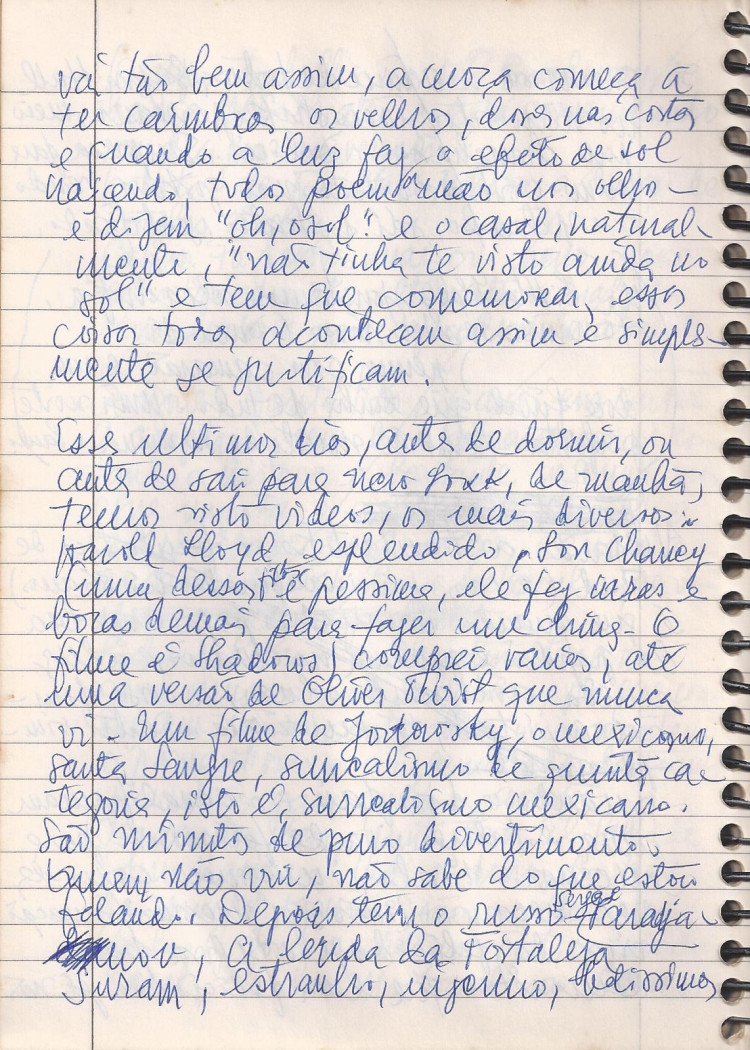 vá tão bem assim, a moça começa a
ter caimbras os velhos, dores nas costas
e quando a luz faz o efeito de sol
nascendo, todos poem a mão nos olho-
e dizem "oh, o sol". e o casal, natural-
mente, "não tinha te visto ainda no
sol" e tem que comemorar, essas
coisas todas acontecem assim e simples-
mente se justificam.
Esses ultimos dias, antes de dormir, ou
antes de sair para New York, de manhã,
temos visto videos, os mais diversos:
Harold Lloyd esplendido, Lon Chaney
(num desses films é pessimo, ele fez caras e
bocas demais para fazer um chinês. O
filme é Shadows) comprei varios, até
uma versão de Oliver Twist que nunca
vi. Um filme de Jodorowsky, o mexicano,
Santa Sangre, surrealismo de quinta ca-
tegoria, isto é, surrealismo mexicano.
São minutos de puro divertimento.
Quem não viu, não sabe do que estou
falando. Depois tem o russo Sergei Paradja-
nov, A lenda da Fortaleza
Suram, estranho, ingenuo, belissimos